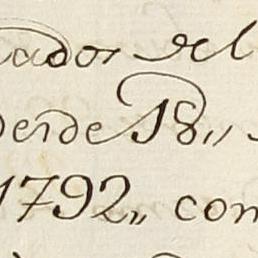 ados del
desde 18,,
1792,, con